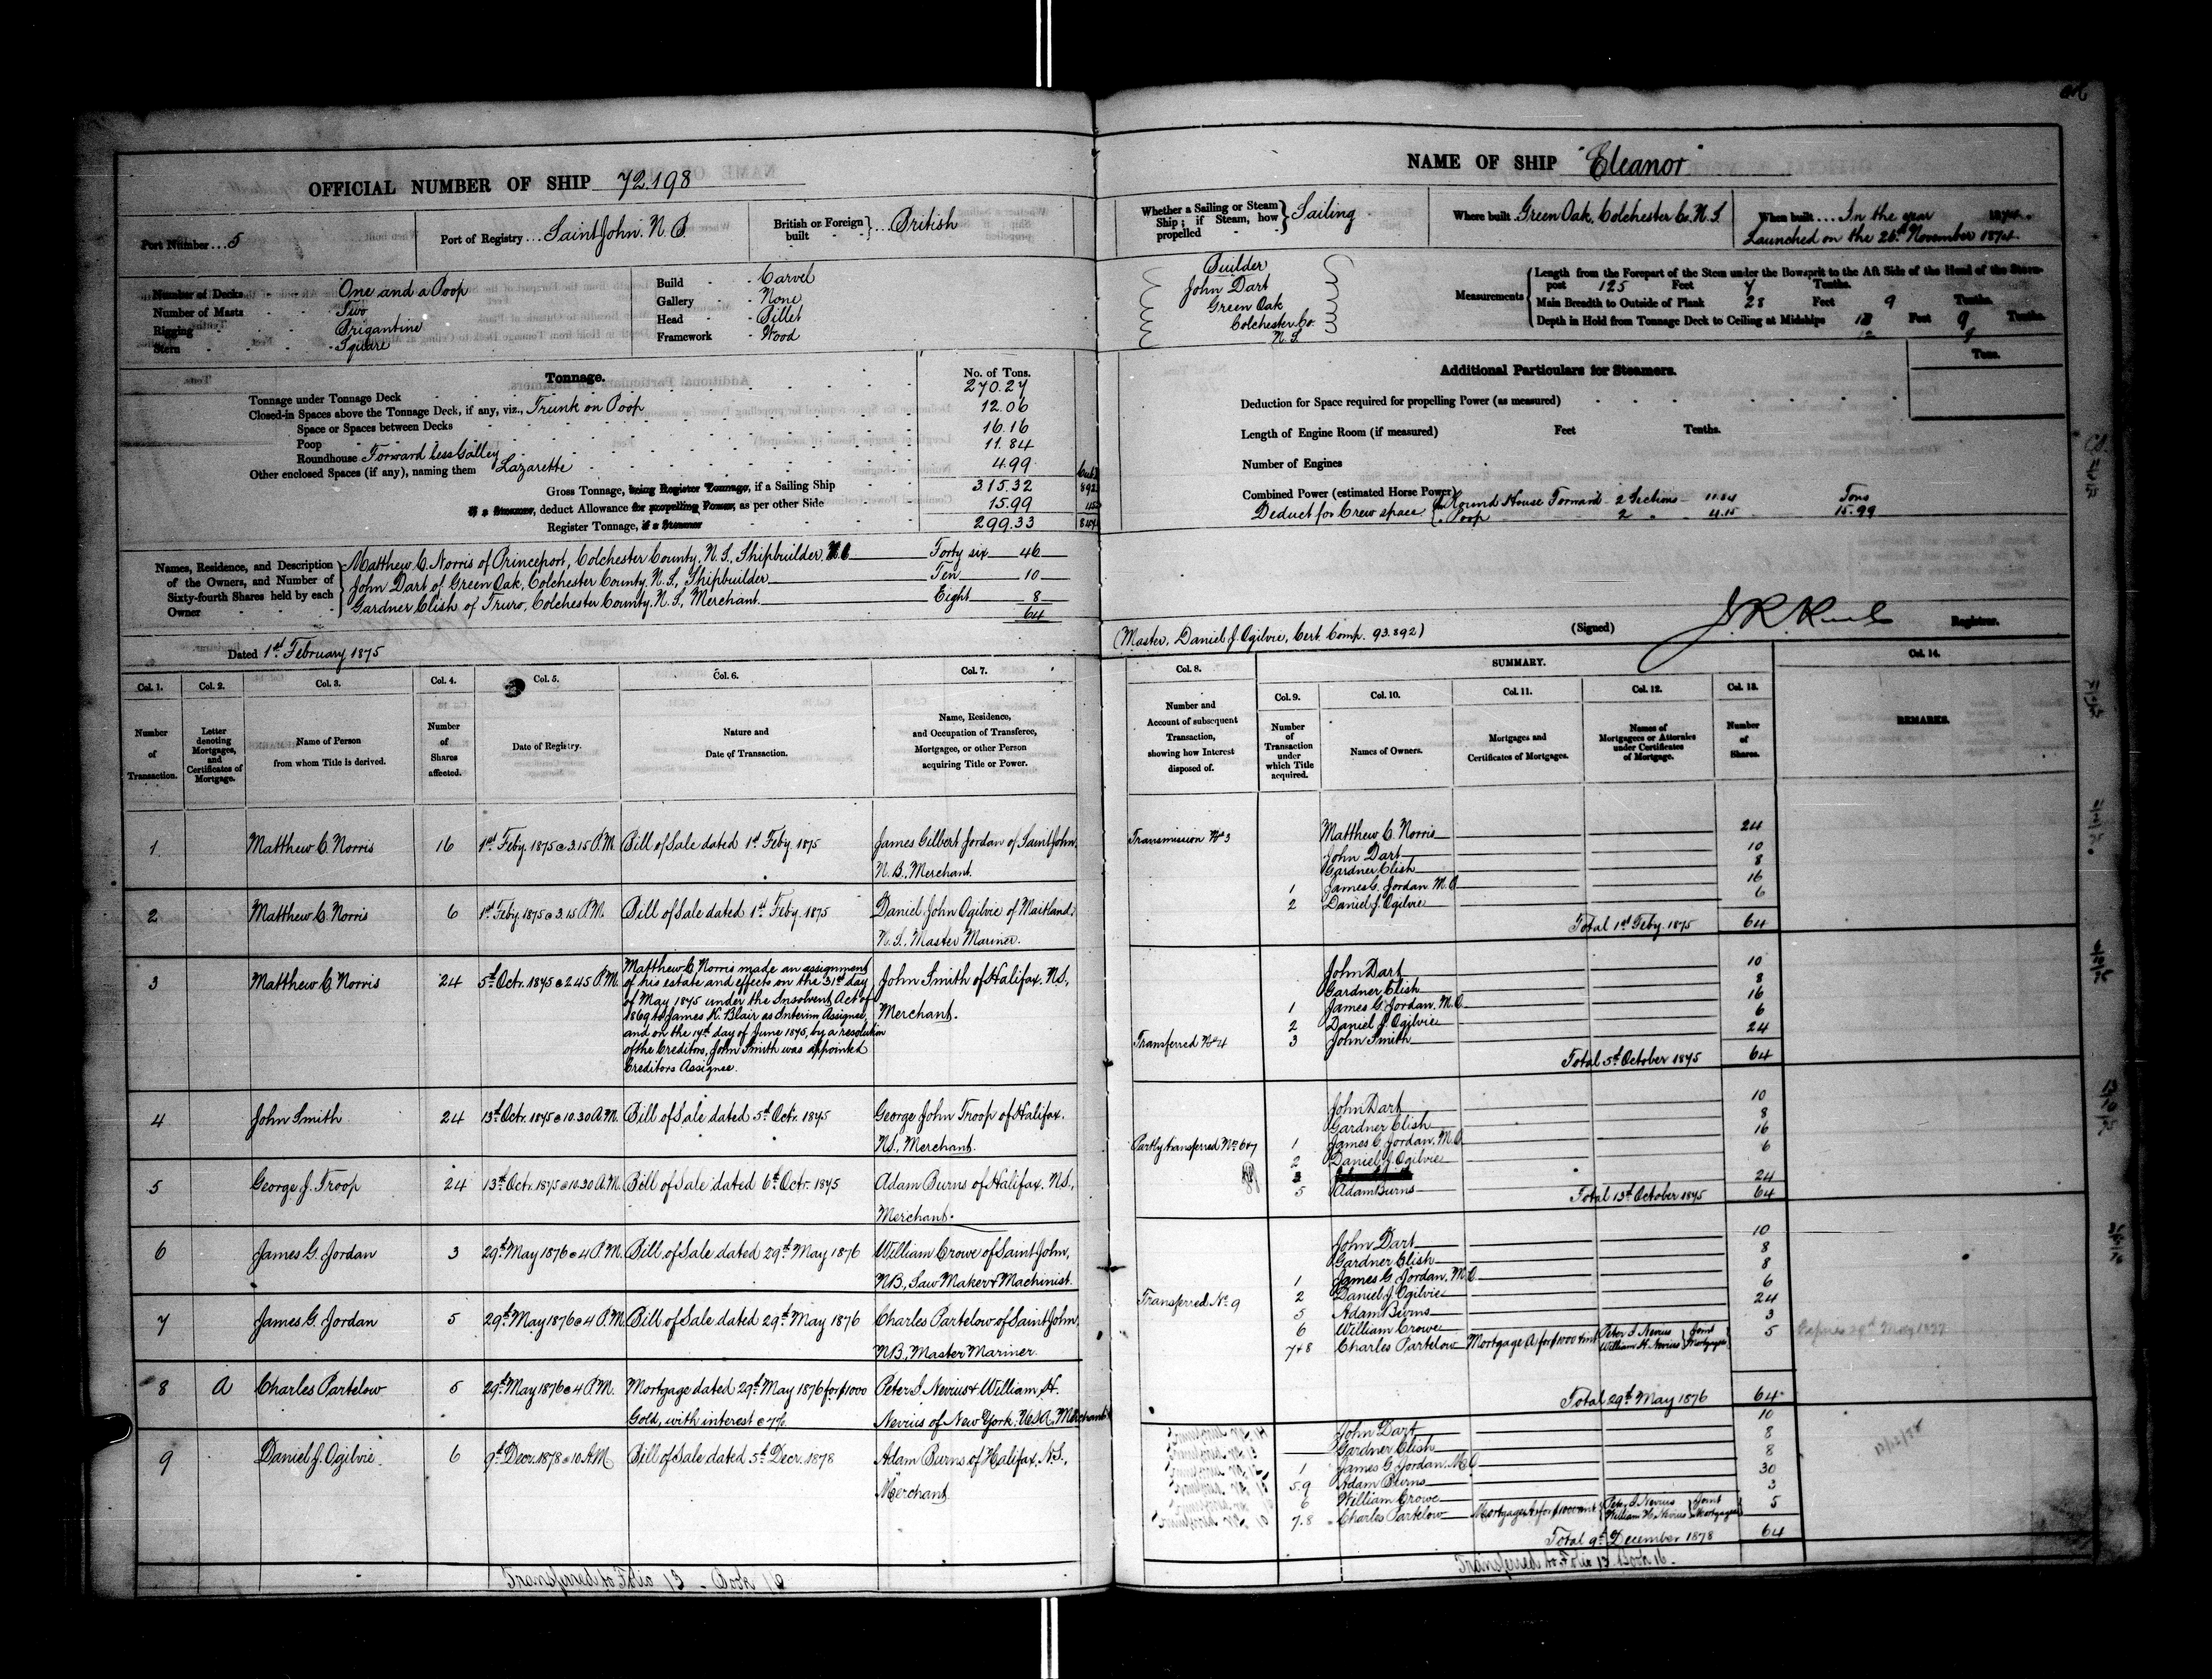 OFFICIAL NUMBER OF SHIP 72.198
Port Number ... 5
Port of Registry ... Saint John. N.B.
British or Foreign built } ... British
Number of Decks - One and a Poop
Number of Masts - Two
Rigging - Brigantine
Stern - Square
Build - Carvel
Gallery - None
Head - Billet
Framework - Wood
Tonnage.
No. of Tons.
Tonnage under Tonnage Deck 270.27
Closed-in Spaces above the Tonnage Deck, if any, viz., Trunk on Poop 12.06
Space or Spaces between Decks
Poop 16.16
Roundhouse Forward less Galley 11.84
Other enclosed Spaces (if any), naming them Lazarette 4.99
Gross Tonnage, being Register Tonnage, if a Sailing Ship 315.32 892
if a Steamer, deduct Allowance for propelling Power, as per other Side 15.99
Register Tonnage, if a Steamer 299.33
Names, Residence, and Description of the Owners, and Number of Sixty-fourth Shares held by each Owner
Matthew C. Norris of Princeport, Colchester County, N.S., Shipbuilder Forty six 46
John Dart of Green Oak, Colchester County, N.S., Shipbuilder Ten 10
Gardner Clish of Truro, Colchester County, N.S., Merchant Eight 8
64
Dated 1st February 1875
Col. 1. Col. 2. Col. 3. Col. 4. Col. 5. Col. 6. Col. 7.
Number of Transaction.
Letter denoting Mortgages, and Certificates of Mortgage.
Name of Person from whom Title is derived.
Number of Shares affected.
Date of Registry.
Nature and Date of Transaction.
Name, Residence, and Occupation of Transferee, Mortgagee, or other Person acquiring Title or Power.
1 Matthew C. Norris 16 1st Feby. 1875 @ 3.15 P.M. Bill of Sale dated 1st Feby. 1875 James Gilbert Jordan of Saint John,
N.B., Merchant.
2 Matthew C. Norris 6 1st Feby. 1875 @ 3.15 P.M. Bill of Sale dated 1st Feby. 1875 Daniel John Ogilvie of Maitland,
N.S., Master Mariner.
3 Matthew C. Norris 24 5th Octr. 1875 @ 2.45 P.M. Matthew C. Norris made an assignment
of his estate and effects on the 31st day
of May 1875 under the Insolvent Act of
1869 to James K. Blair as Interim Assignee,
and on the 14th day of June 1875, by a resolution
of the Creditors, John Smith was appointed
Creditors Assignee.
John Smith of Halifax, N.S.,
Merchant.
4 John Smith 24 13th Octr. 1875 @ 10.30 A.M. Bill of Sale dated 5th Octr. 1875 George John Troop of Halifax.
N.S., Merchant.
5 George J. Troop 24 13th Octr. 1875 @ 10.30 A.M. Bill of Sale dated 6th Octr. 1875 Adam Burns of Halifax. N.S.,
Merchant.
6 James G. Jordan 3 29th May 1876 @ 4 P.M. Bill of Sale dated 29th May 1876 William Crowe of Saint John,
N.B., Saw Maker & Machinist.
7 James G. Jordan 5 29th May 1876 @ 4 P.M. Bill of Sale dated 29th May 1876 Charles Partelow of Saint John,
N.B., Master Mariner.
8 A Charles Partelow 5 29th May 1876 @ 4 P.M. Mortgage dated 29th May 1876 for $1000
Gold, with interest @ 7%.
Peter I. Nevius & William H.
Nevius of New York, U.S.A., Merchants
9 Daniel J. Ogilvie. 6 9th Decr. 1878 @ 10 A.M. Bill of Sale dated 5th Decr. 1878 Adam Burns of Halifax, N.S.,
Merchant
Transferred to Folio 13 - Book 16
NAME OF SHIP "Eleanor"
Whether a Sailing or Steam Ship; if Steam, how propelled } Sailing
Where built Green Oak, Colchester Co. N.S.
When built ... In the year 1874.
Launched on the 26th November 1874.
Builder
John Dart
Green Oak
Colchester Co.
N.S.
Measurements
Length from the Forepart of the Stem under the Bowsprit to the Aft Side of the Head of the Stern-
post 125 Feet 7 Tenths.
Main Breadth to Outside of Plank 28 Feet 9 Tenths.
Depth in Hold from Tonnage Deck to Ceiling at Midships Feet 9 Tenths.
12 9
Additional Particulars for Steamers.
Tons.
Deduction for Space required for propelling Power (as measured)
Length of Engine Room (if measured) Feet Tenths.
Number of Engines
Combined Power (estimated Horse Power)
Deduct for Crew space { in Round House Forward - 2 Sections - 11.84 Tons
" Poop 2 " 4.15 15.99
(Master, Daniel J. Ogilvie, Cert. Comp. 93.892)
(Signed) Registrar.
Col. 8. SUMMARY. Col. 14.
Col. 9. Col. 10. Col. 11. Col. 12. Col. 13.
Number and Account of subsequent Transaction, showing how Interest disposed of.
Number of Transaction under which Title acquired.
Names of Owners.
Mortgages and Certificates of Mortgages.
Names of Mortgagees or Attornies under Certificates of Mortgage.
Number of Shares.
REMARKS.
Transmission No 3
Matthew C. Norris 24
John Dart 10
Gardner Clish 8
1 James G. Jordan. M.O. 16
2 Daniel J. Ogilvie 6
Total 1st Feby. 1875 64
John Dart 10
Gardner Clish 8
1 James G. Jordan. M.O. 16
2 Daniel J. Ogilvie 6
Transferred No 4 3 John Smith 24
Total 5th October 1875 64
John Dart 10
Gardner Clish 8
Partly transferred No 6 & 7 1 James G. Jordan, M.O. 16
2 Daniel J. Ogilvie 6
5 Adam Burns 24
Total 13th October 1875 64
John Dart 10
Gardner Clish 8
1 James G. Jordan, M.O. 8
Transferred No 9 2 Daniel J. Ogilvie 6
5 Adam Burns 24
6 William Crowe 3
7 & 8 Charles Partelow Mortgage A for $1000 & int Peter I. Nevius William H. Nevius } Joint Mortgagees 5
Total 29th May 1876 64
John Dart 10
Gardner Clish 8
1 James G. Jordan. M.O. 8
5.9 Adam Burns 30
6 William Crowe 3
7.8 Charles Partelow Mortgage A for $1000 & int { Peter I. Nevius William H. Nevius } Joint Mortgagees 5
Total 9th December 1878 64
Transferred to Folio 13 Book 16.